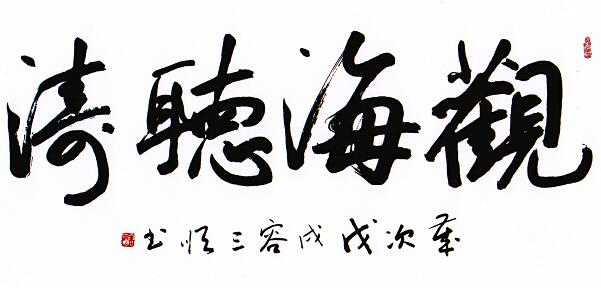 觀海聽濤
歲次戊戌容三书